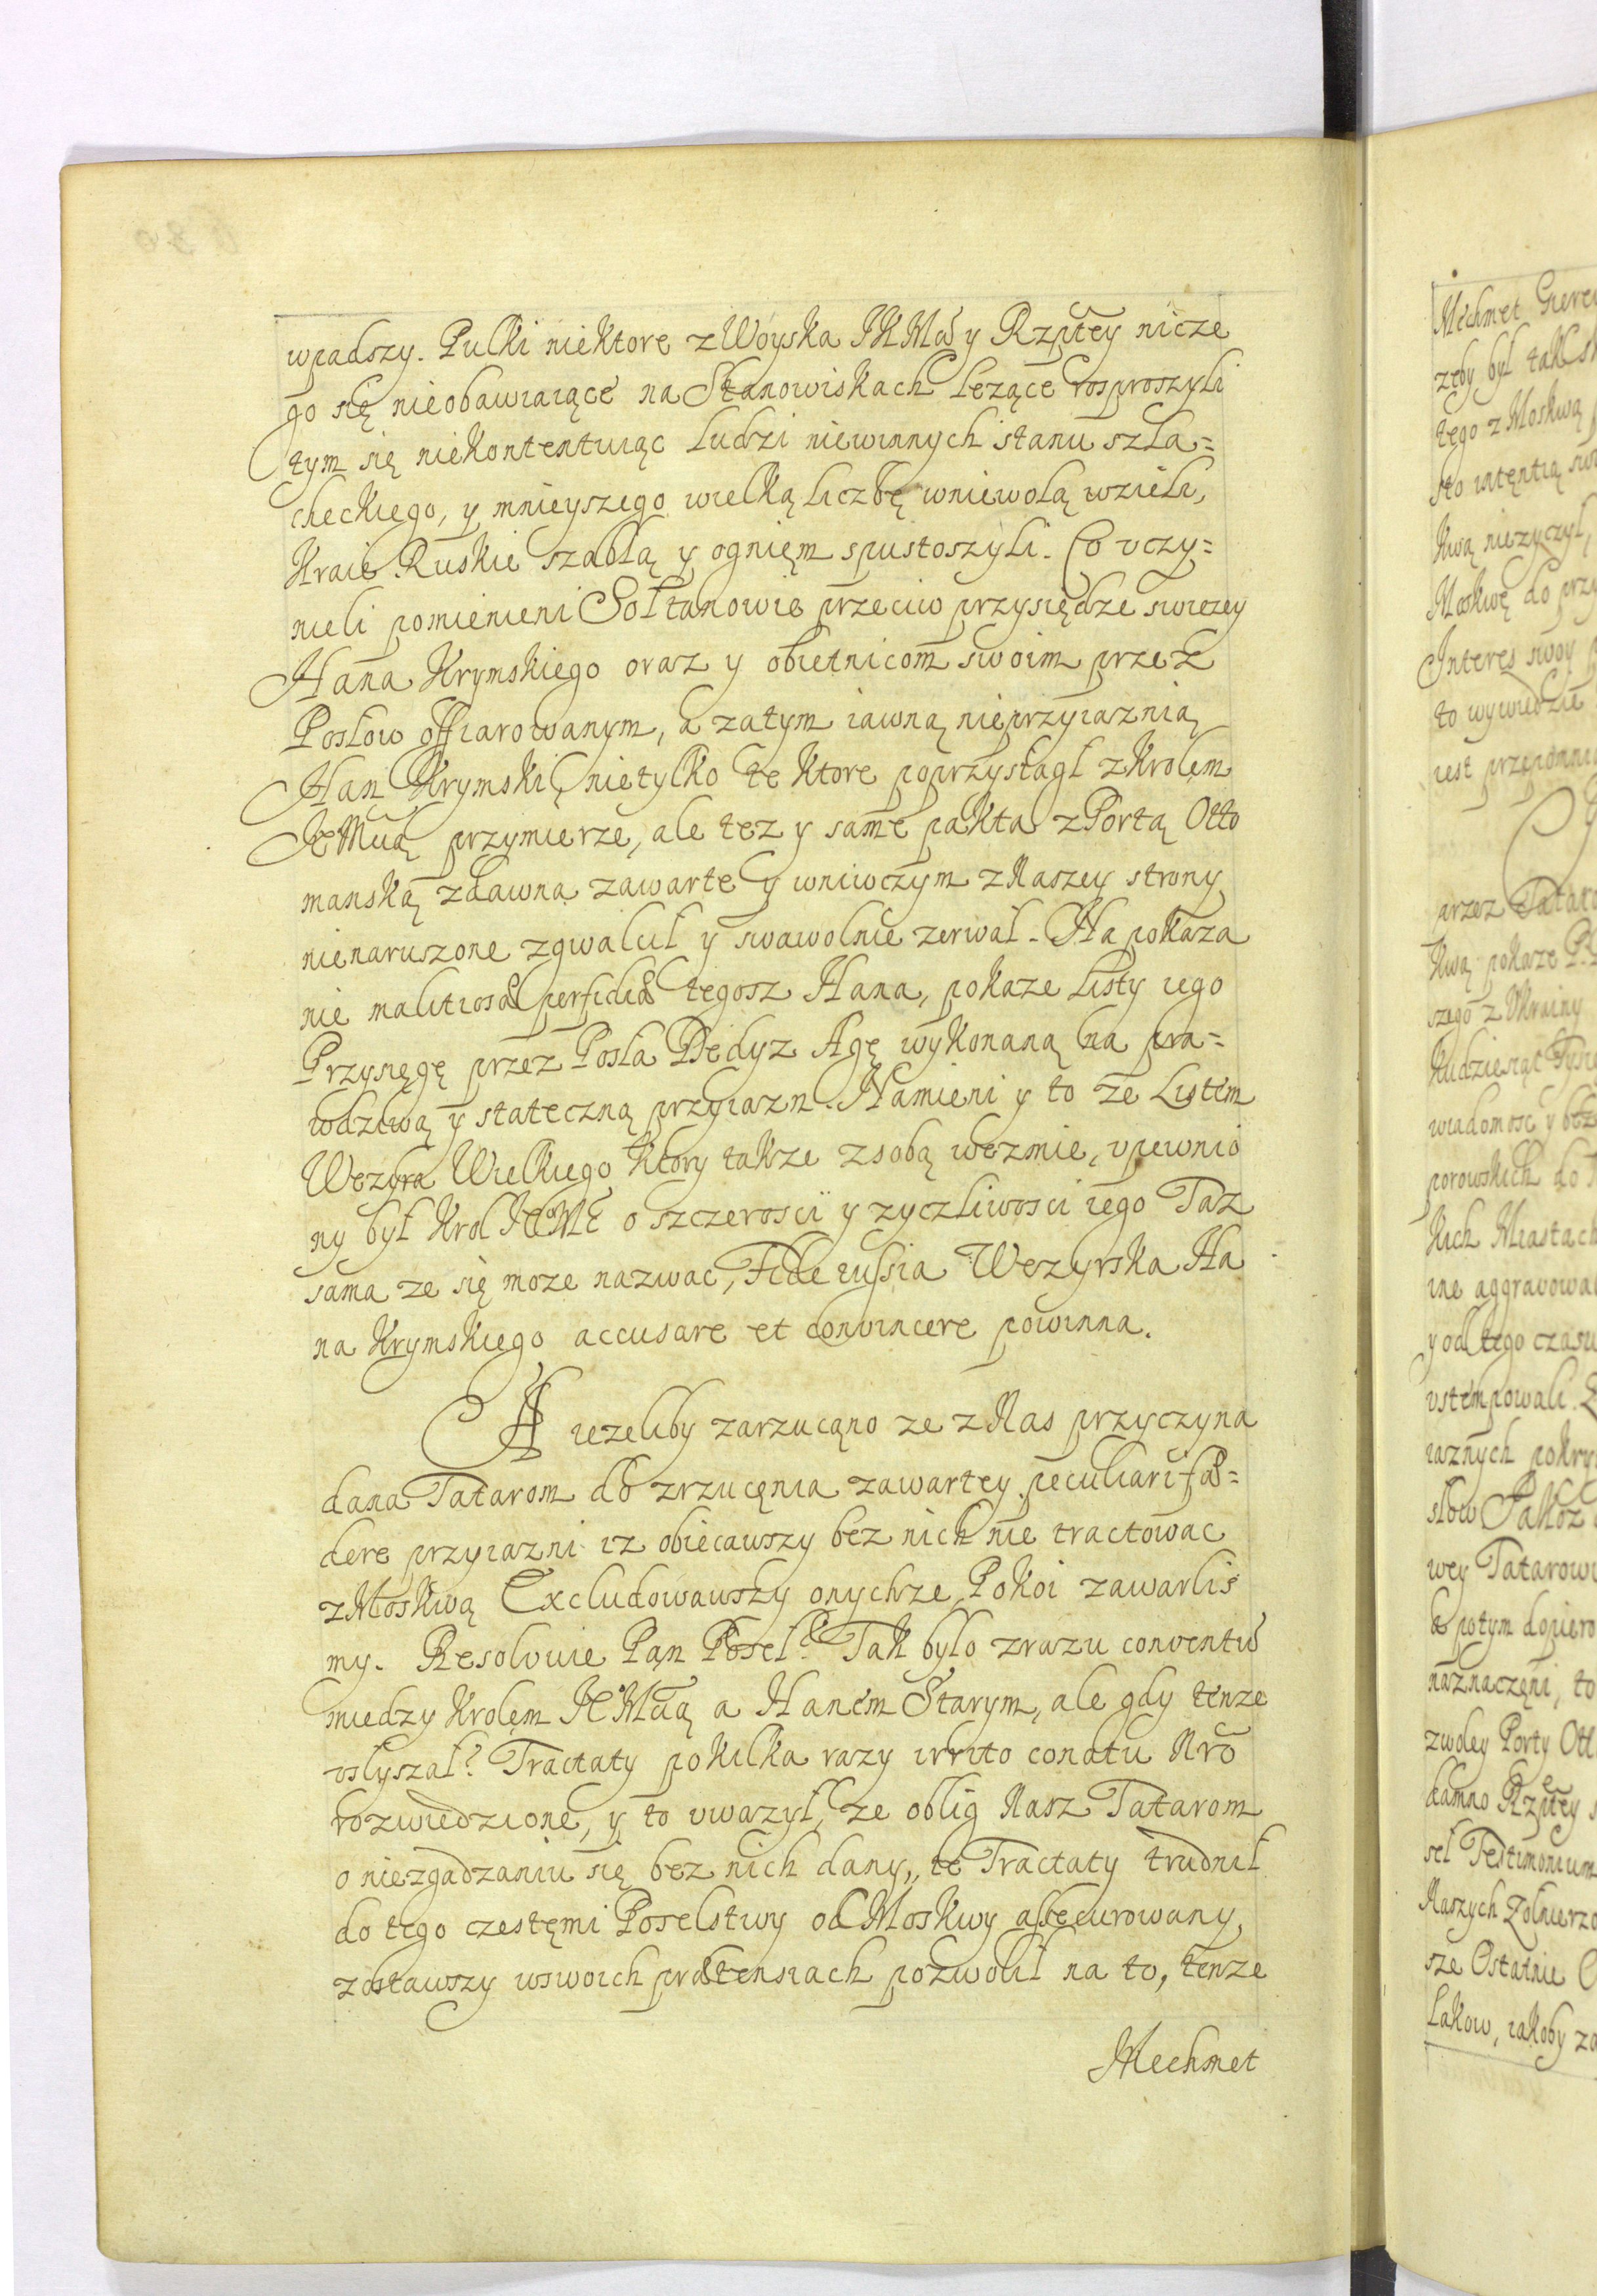 wpadszy. Pulki niektore z Woyska JKMsci y Rzptey nicze
go się nieobawiaiące na Stanowiskach lezące rosproszyli
tym się niekontentuiąc ludzi niewinnych stanu szla=
checkiego, y mnieyszego wielką liczbę wniewolą wzieli,
Kraie Ruskie szablą y ognięm spustoszyli. Co vczy=
nieli pomienieni Sołtanowie przeciw przysiędze swiezey
Hana Krymskiego oraz y obietnicom swoim przez
Posłow offiarowanym, a zatym iawną nieprzyiaznią
Han Krymski, nietylko te ktore poprzysłągl z Krolem
JeMcią przymierze, ale tez y same pakta z Portą Otto
manską zdawna zawarte y wniwczym z Naszey strony
nienaruszone zgwalcił y swawolnie zerwał. Na pokaza
nie malitiosæ perfidiæ tegosz Hana, pokaze Listy iego
Przysięgę przez Posła Dedyz Agę wykonaną na pra=
wdziwą y stateczną przyiazn. Namieni y to ze Listem
Wezyra Wielkiego ktory takze zsobą wezmie, vpewnio
ny był Krol JeMć o szczerosci y zyczliwosci iego Taz
sama ze się moze nazwac, Fideiussia Wezyrska Ha
na Krymskiego accusare et convincere powinna.
A iezeliby zarzucąno ze z Nas przyczyna
dana Tatarom do zrzucęnia zawartey peculiari fæ=
dere przyiazni iz obiecawszy bez nich nie tractowac
z Moskwą Excludowawszy onychze Pokoi zawarlis
my. Resolvuie Pąn Poseł? Tak bylo zrazu conventũ
miedzy Krolęm JeMcią a Haném Starym, ale gdy tenze
vslyszał? Tractaty pokilka razy irrito conatu Nrõ
rozwiedzione, y to vwazył, ze oblig Nasz Tatarom
o niezgadzaniu się bez nich dany, te Tractaty trudnił
do tego czestęmi Poselstwy od Moskwy assecurowany,
zostawszy wswoich prætensiach pozwolił na to, tenze
Mechmet
Mechmet
zeby był tak
tego z Moskwą
sto intęntią
Kwą niezyczył,
Moskwę do przy
Interęs swoy
to wywiedzie
iest przepomni
przez Tataro
Kwą pokaze
szego z Ukrainy
wiadomosc y
porowskich do
Kich Miastach
ine aggravowa
y od tego czasu
vstempowali.
iaznych pokry
słow Jakoz
wey Tatarowi
potym dopiero
naznaczęni, to
zwoley Porty Ott
damno Rzptey
seł Testimonium
Naszych Zolnierzo
sze Ostatnie
lakow, iakoby za